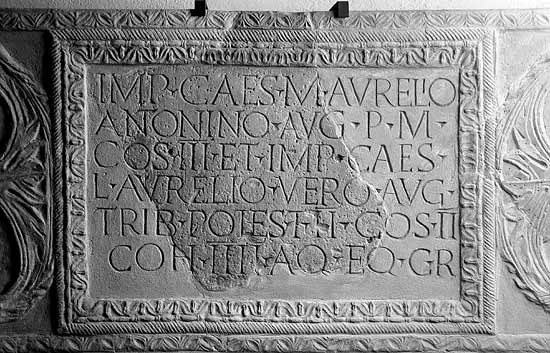 IMP·CAES·M·AVRELIO
ANONINO·AVG·P·M·
COS·III·ET·IMP·CAES·
L·AVRELIO·VERO·AVG·
TRIB·POTEST·II·COS·II
COH·IIII·AQ·EQ·GR